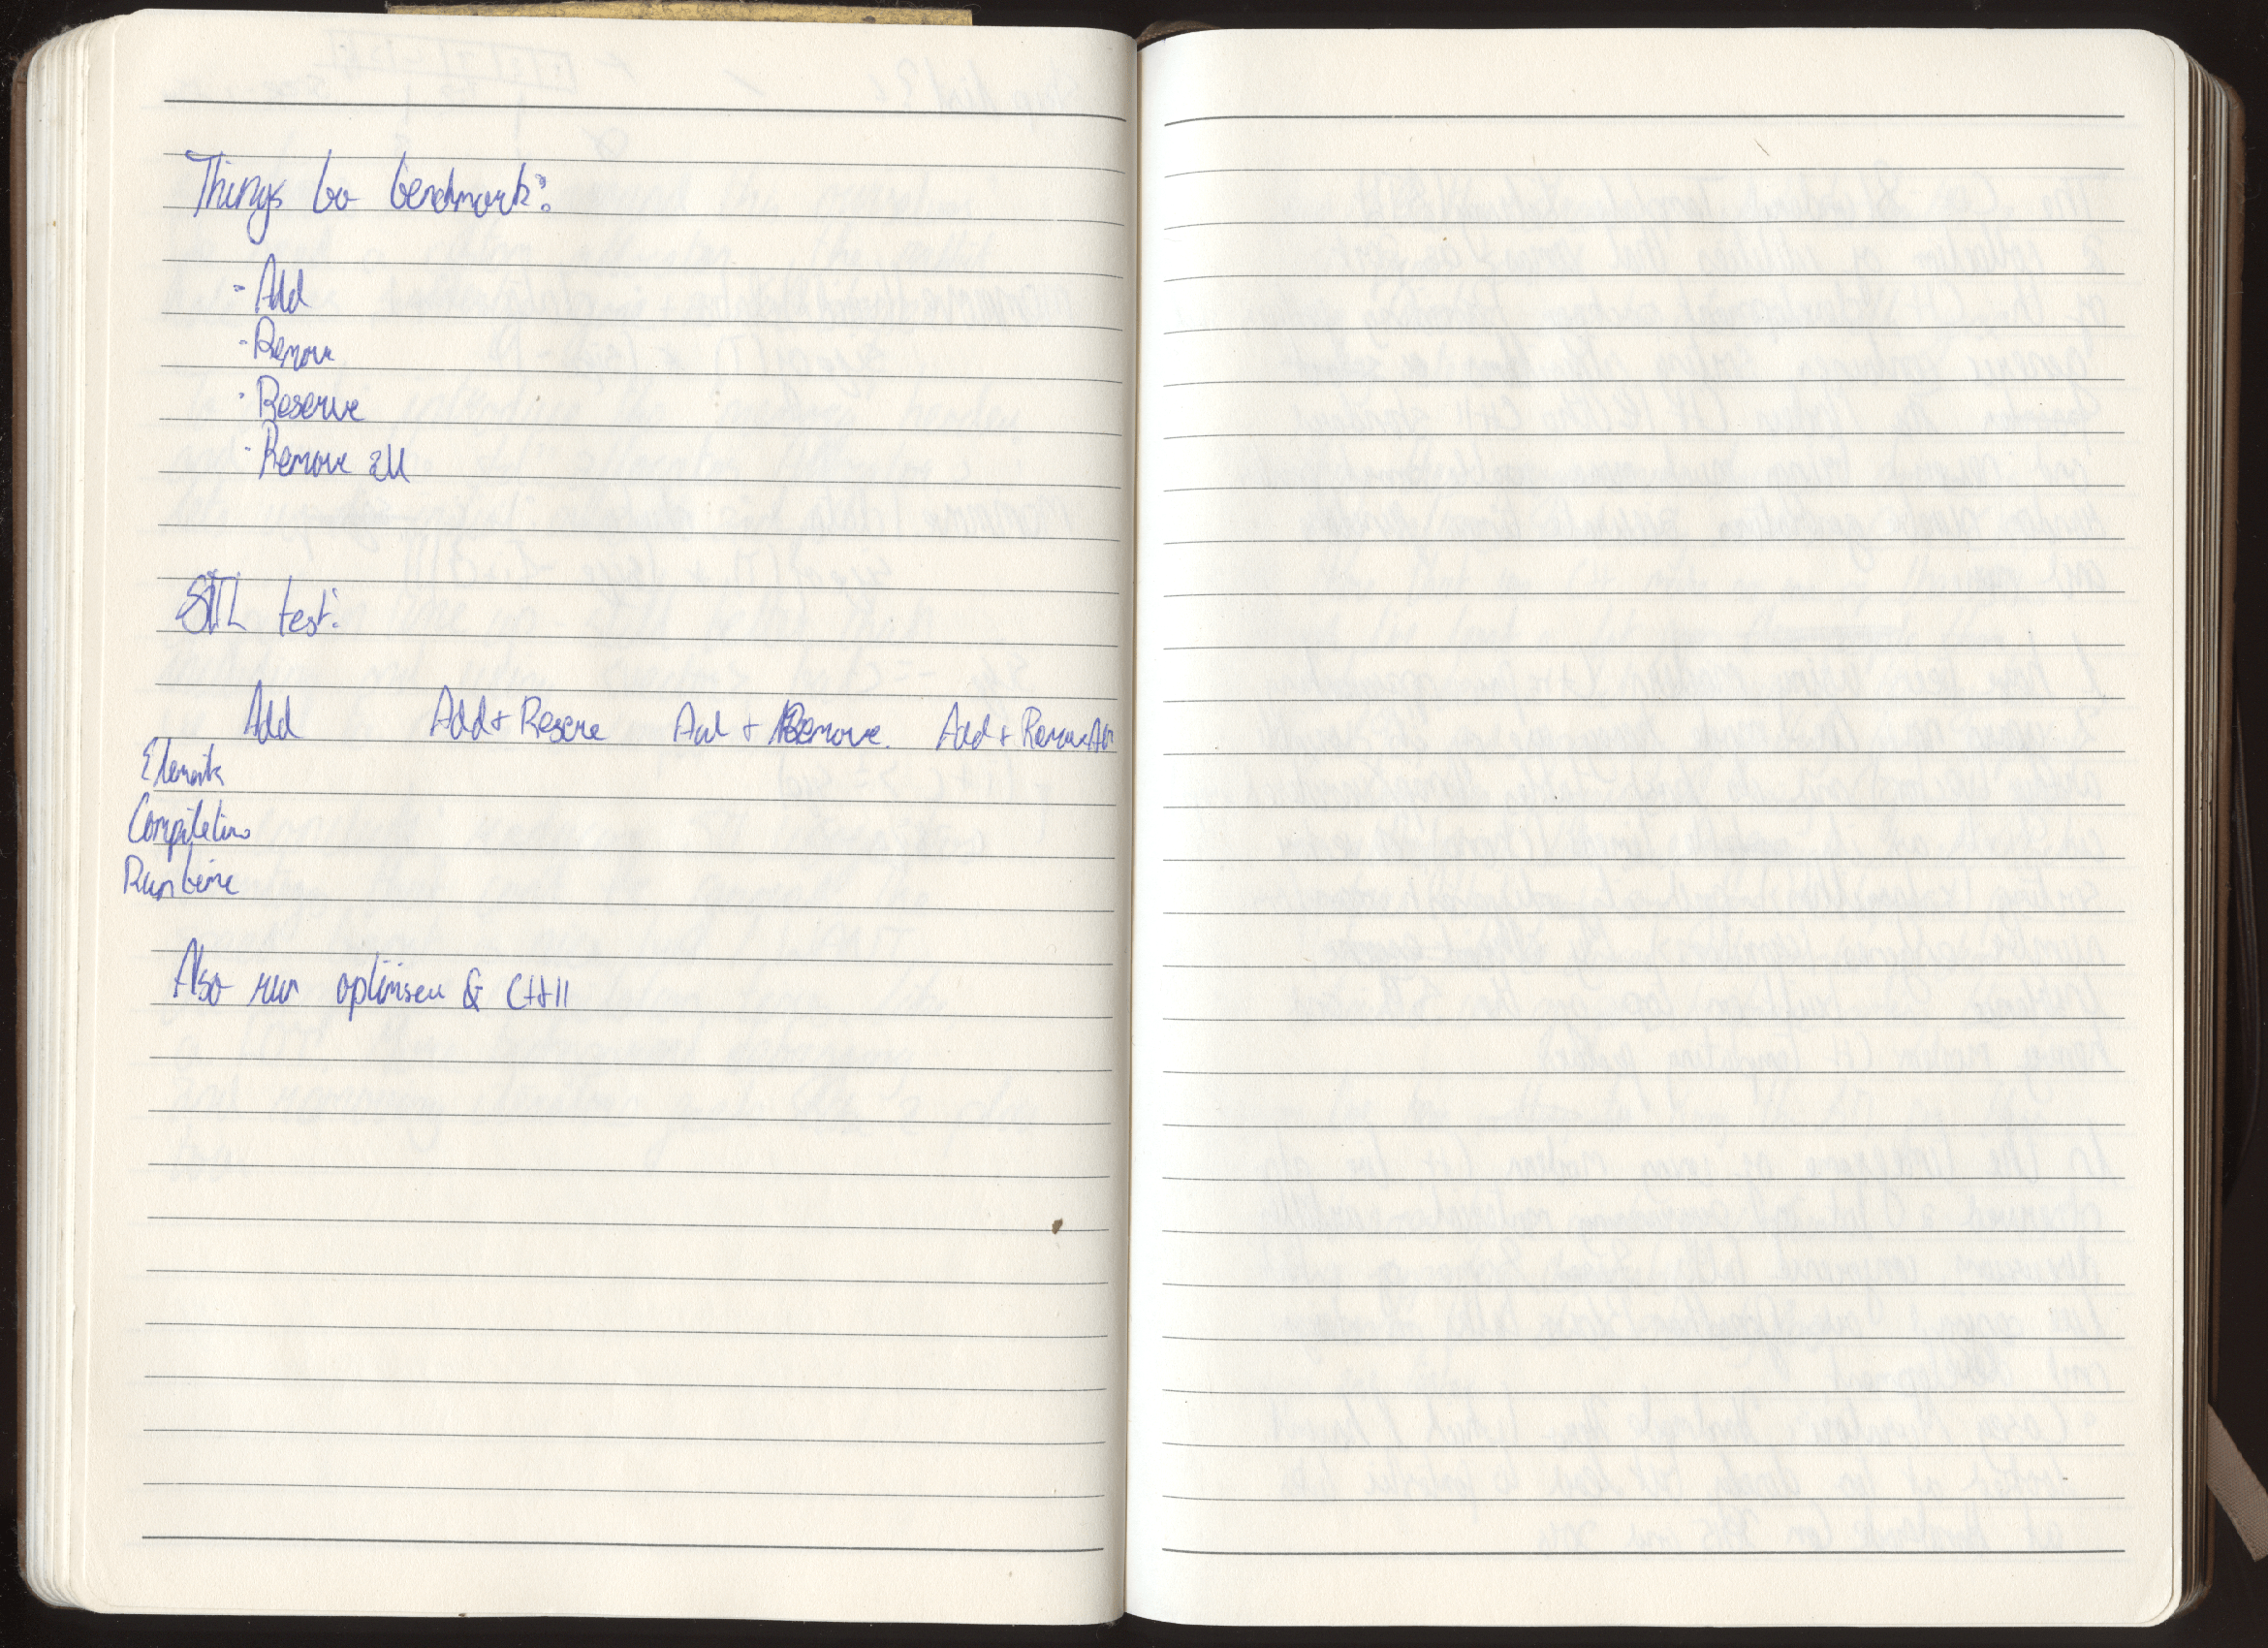 Things to benchmark:
- Add
- Remove
- Reserve
- Remove all
STL test:
Add Add + Reserve Add + Remove Add + Remove All
Elements
Compiletime
Runtime
Also run optimiser & C++11